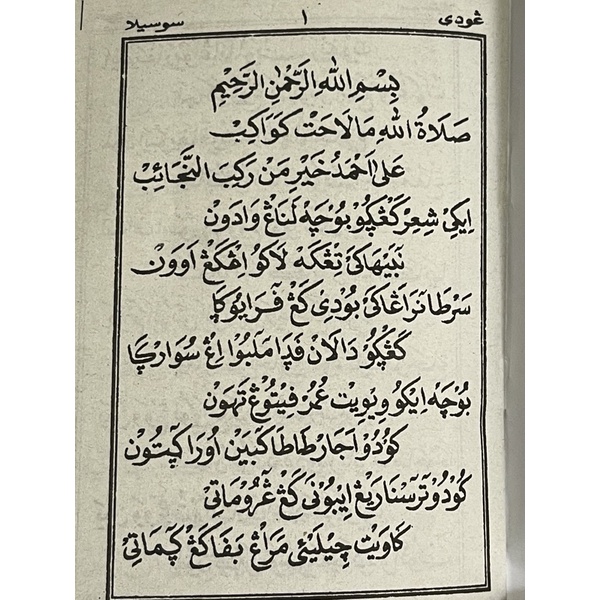 ڠودي ١ سوسيلا
بِسْمِ اللهِ الرَّحْمٰنِ الرَّحِيْمِ
صَلَاةُ اللهِ مَا لَاحَتْ كَوَاكِبْ
عَلٰى اَحْمَدْ خَيْرِ مَنْ رَكِبَ النَّجَائِبْ
اِيكِيْ شِعِرْ كَڠْڮَوْ بَوْچَهْ لَنَاڠْ وَادَوْن
نَبَيْهَاكَيْ تِڠْكَهْ لَاكُوْ اِڠْكَڠْ اَوَوْن
سَرْطَا نَرَاڠَاكَيْ بُوْدِيْ كَڠْ ڤْرَايَوْڮَا
كَڠْڮَوْ دَالَانْ ڤَدَا مَلَبُوْ اِڠْ سُوَارْڮَا
بَوْچَهْ اِيكُوْ وِيْوِيْت عُمُرْ ڤِيْتُوْڠْ تَهَوْن
كُوْدُوْ اَجَارْ طَاطَا كَبَيْن اَوْرَا كَڮَتُوْن
كُوْدُوْ تْرَسْنَا رِيڠْ اِيْبُوْنَيْ كَڠْ ڠْرُوْمَاتِيْ
كَاوِيْت چِيْلِيْئَيْ مَرَاڠْ بَڤَا كَڠْ ڮَمَاتِيْ